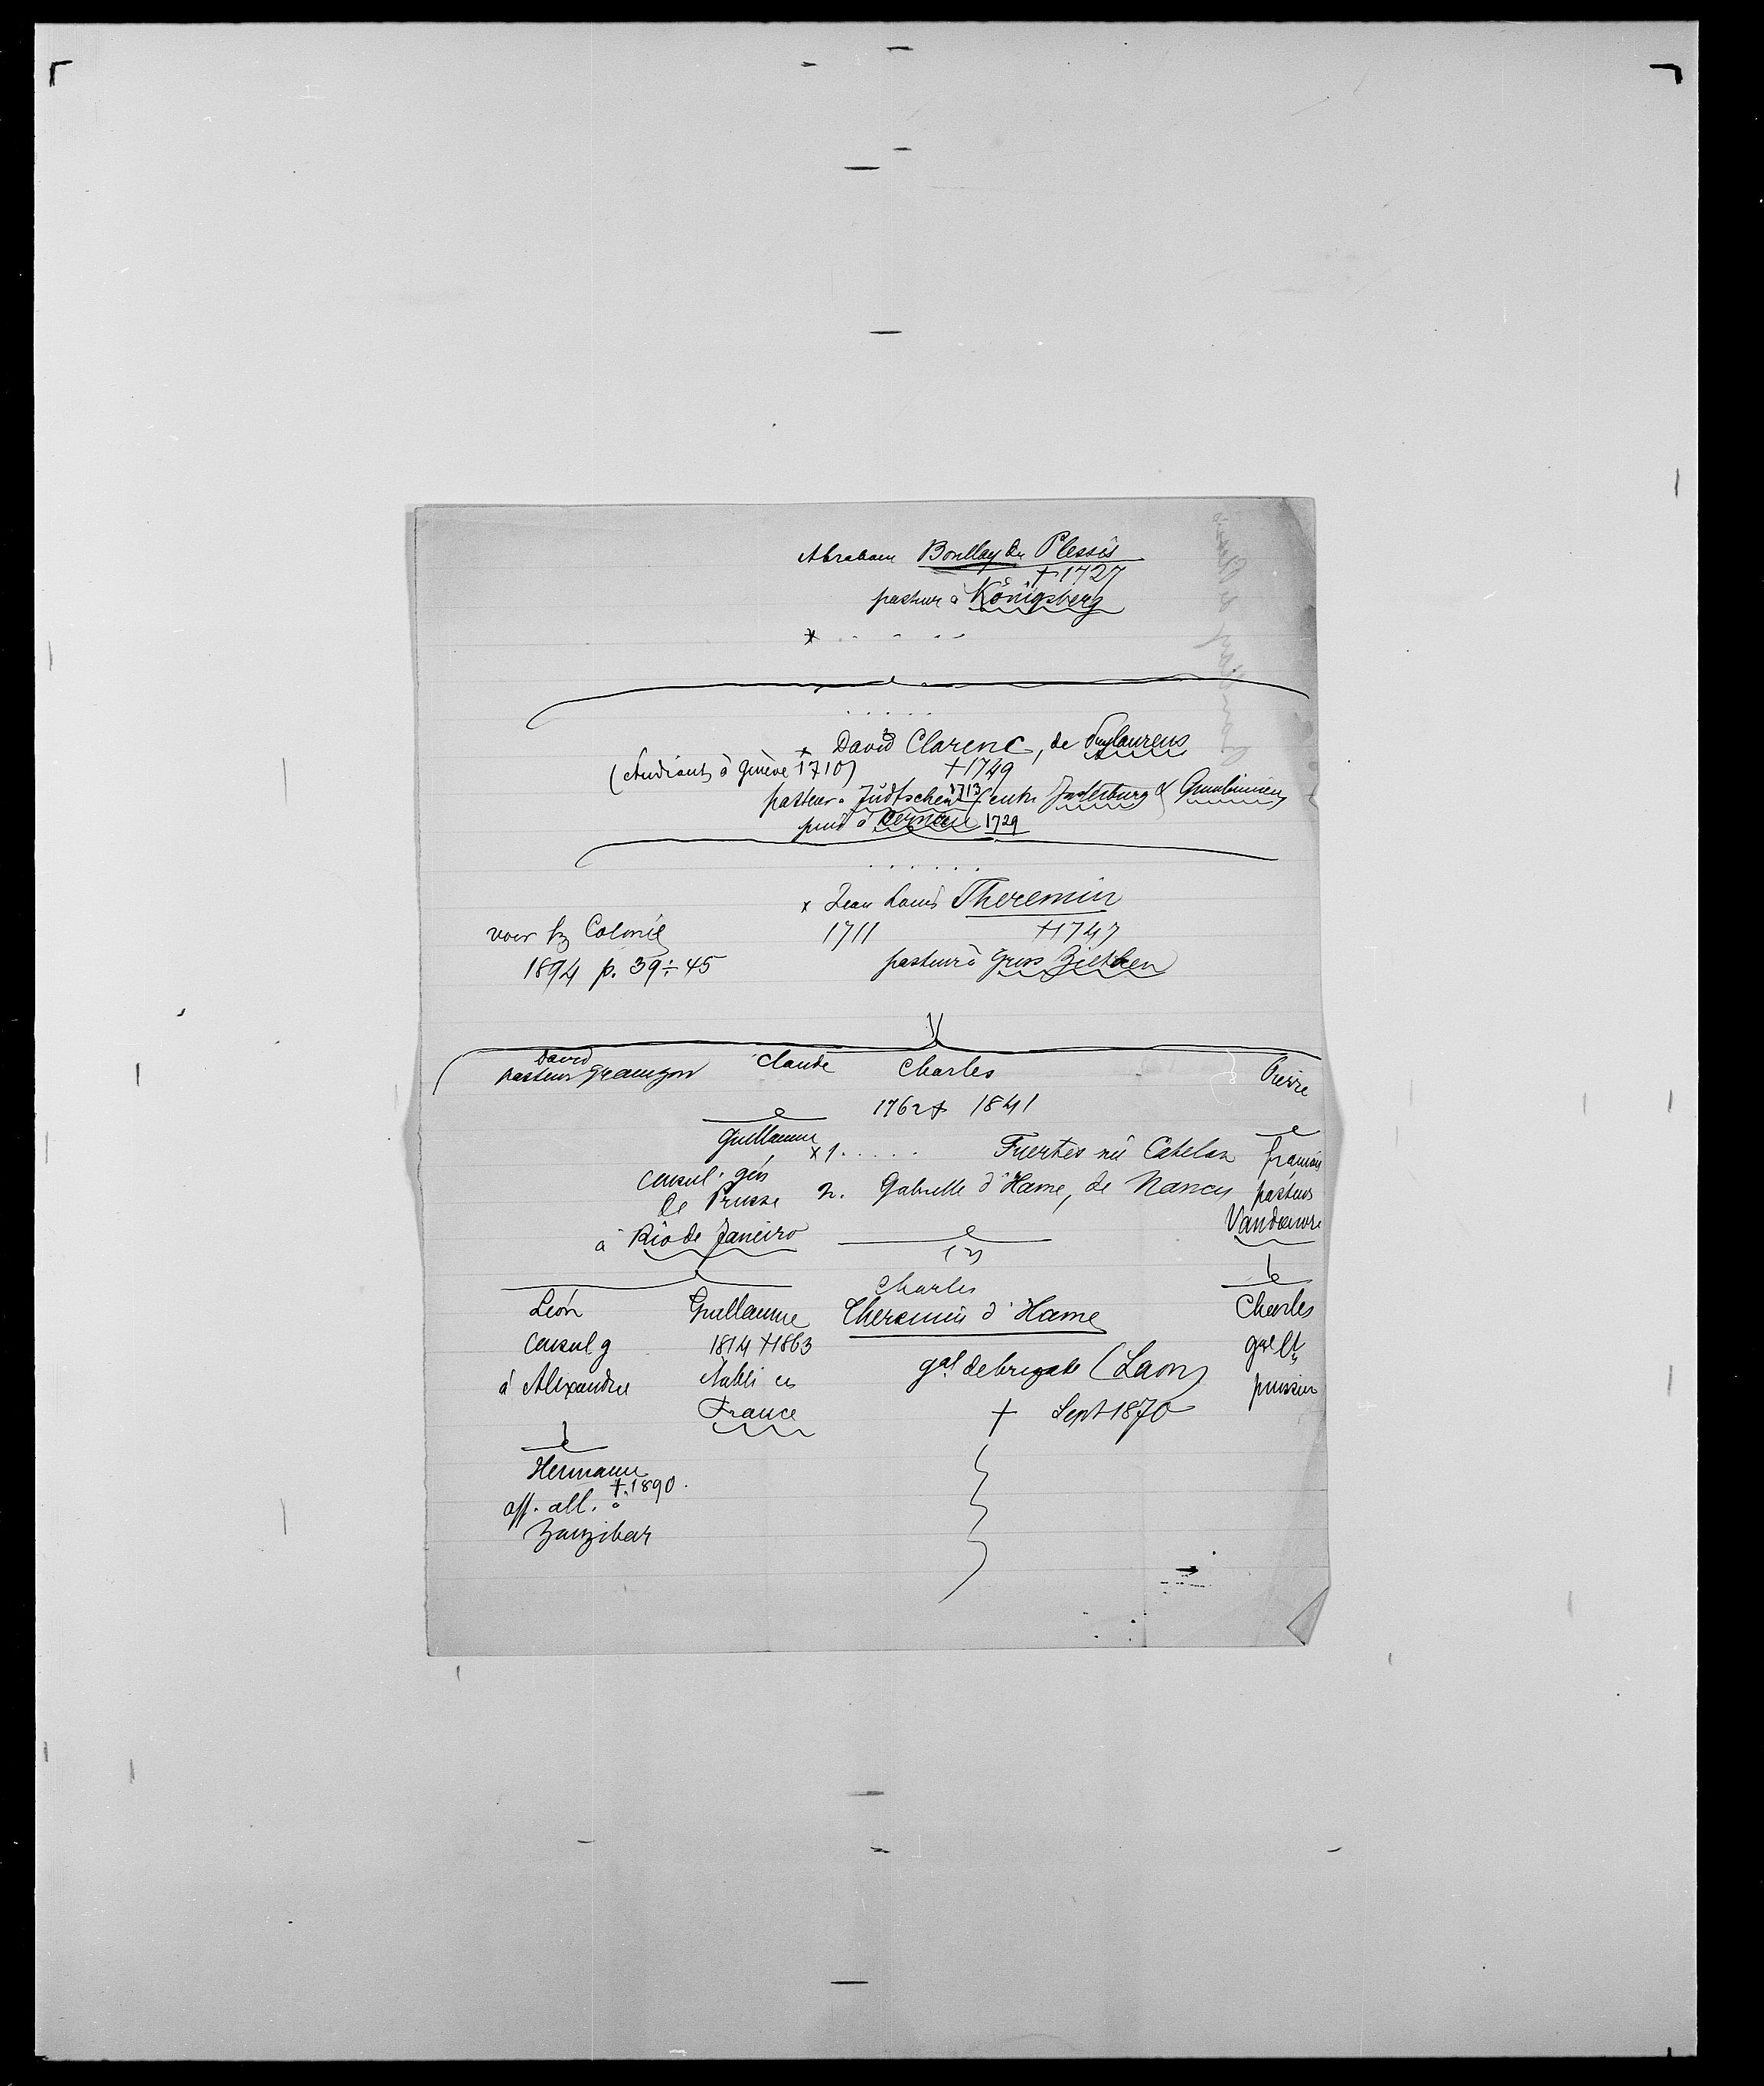 Abraham Boullay du Plessis
† 1727
pasteur à Königsberg
x . . . . .
. . . . .
x David Clarenc, de Puylaurens
(étudiant à Genève 1710) † 1749
pasteur à Judtschen 1713 (entre Insterburg & Gumbinnen)
puis à 1729
. . . . . .
x Jean Louis Theremin
voir fz Colonie 1711 † 1747
1894 p. 39÷45 pasteur à Gros Ziethen
David Claude Charles Pierre
pasteur Gramzow
1762 † 1841
Guillaume x 1. . . . . Fuertès née Catelan françois
consul. gén 2. Gabrielle d'Hame, de Nancy pasteur
de Prusse Vandœuvre
à Rio de Janeiro
(2)
Charles
Léon Guillaume Theremin d'Hame Charles
consul g 1814 † 1863 gal de brigade (Laon) gal lt
à Alexandrie établi en prussien
France † Sept 1870
Hermann
† 1890.
off. all. à
Zanzibar